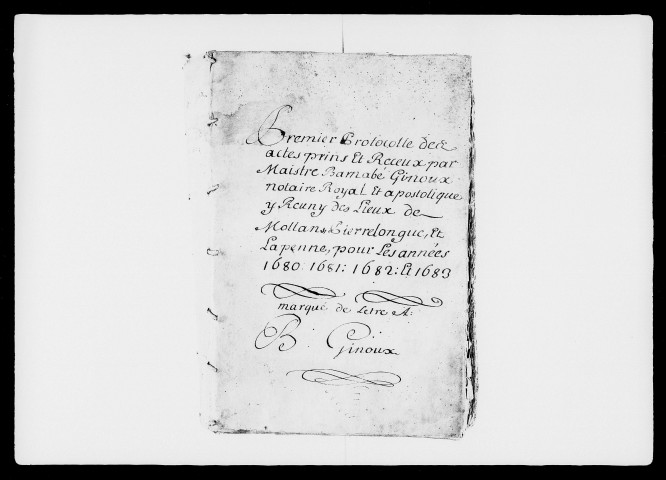 Premier Protocolle des
actes prins Et Receux par
Maistre Barnabé Ginoux
notaire Royal Et apostolique
y Reuny des Lieux de
Mollans, Pierrelongue, Et
Lapenne, pour Les années
1680: 1681: 1682: Et 1683
marqué de Letre A:
B: Ginoux